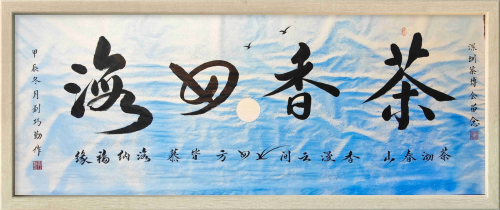 深圳茶博会留念
茶香四海
茶沏春山 香漫云间 四方皆恭 海纳福缘
甲辰冬月刘巧勤作